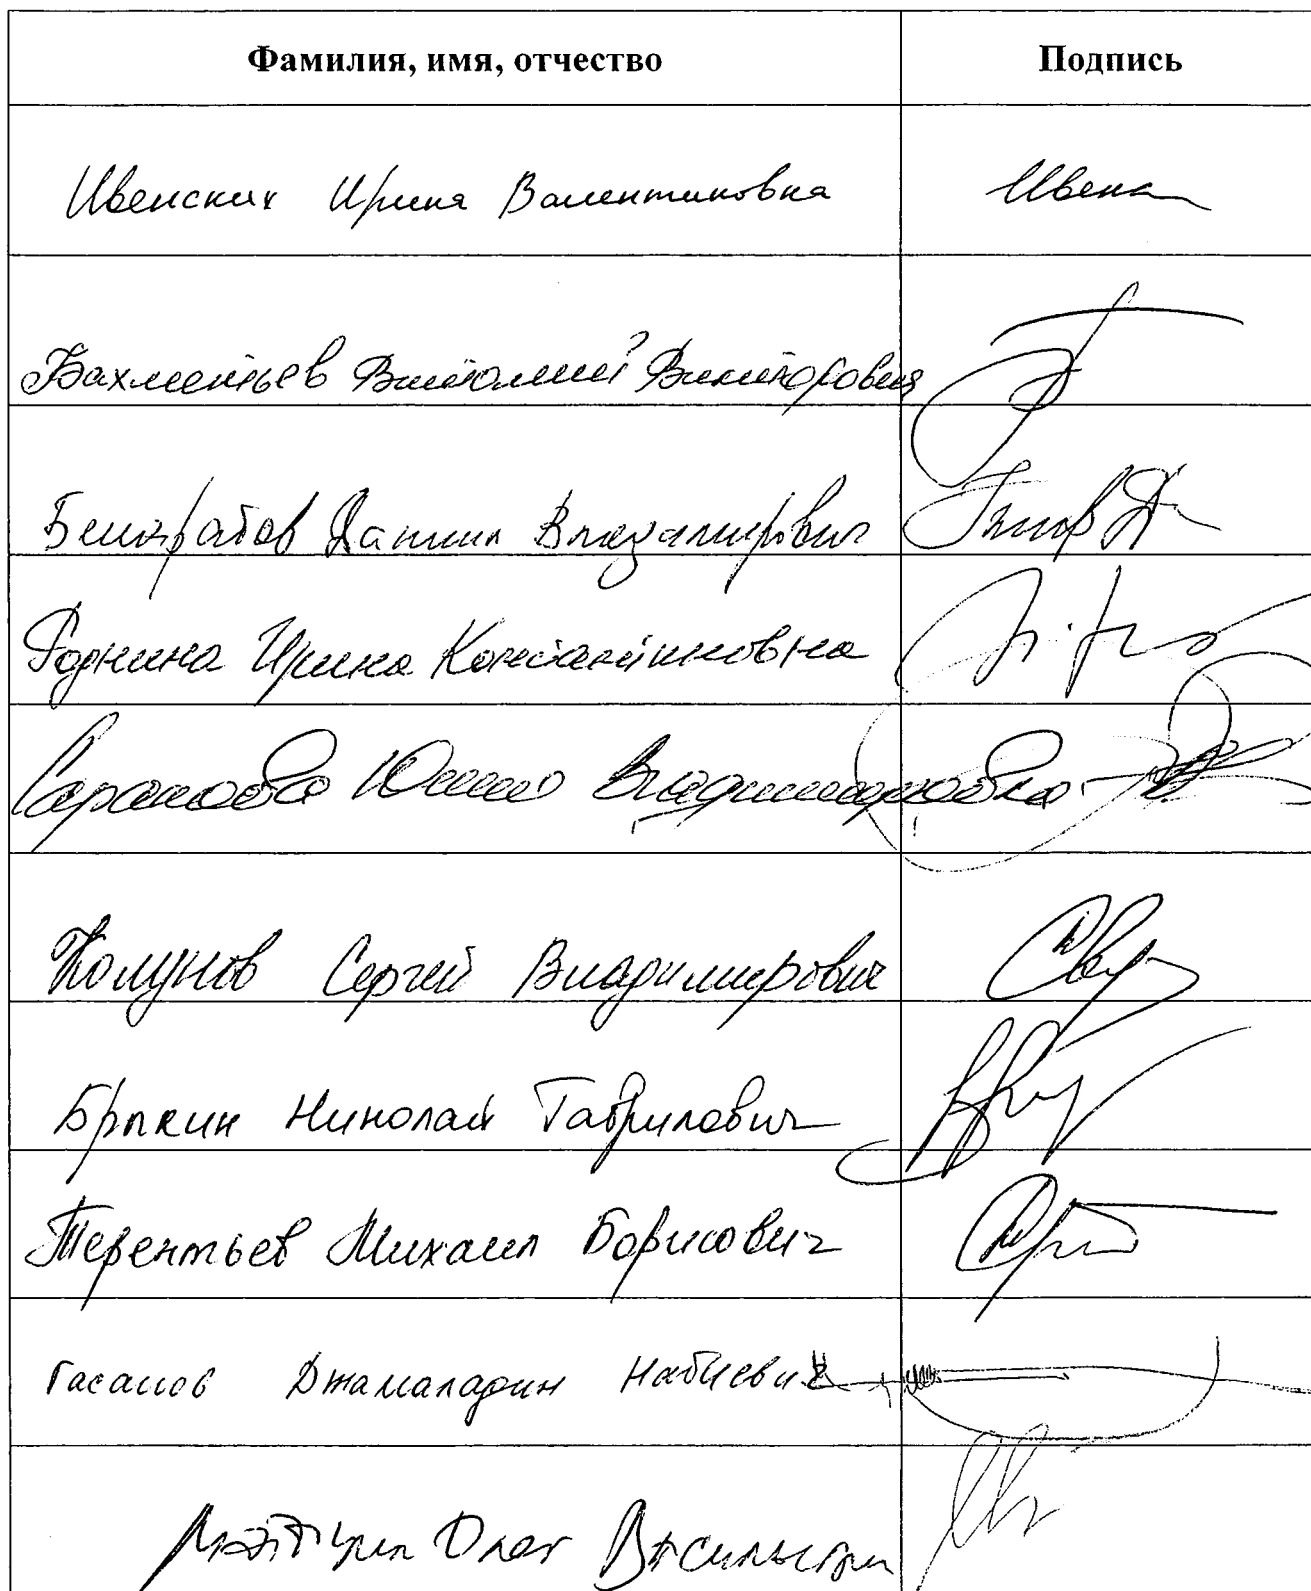 Фамилия, имя, отчество Подпись
Ивенских Ирина Валентиновна Ивенс
Бахметьев Виталий Викторович
Бессарабов Даниил Владимирович
Роднина Ирина Константиновна
Саранова Юлия Владимировна
Колунов Сергей Владимирович
Брыкин Николай Гаврилович
Терентьев Михаил Борисович
Гасанов Джамаладин Набиевич
Олег Васильевич